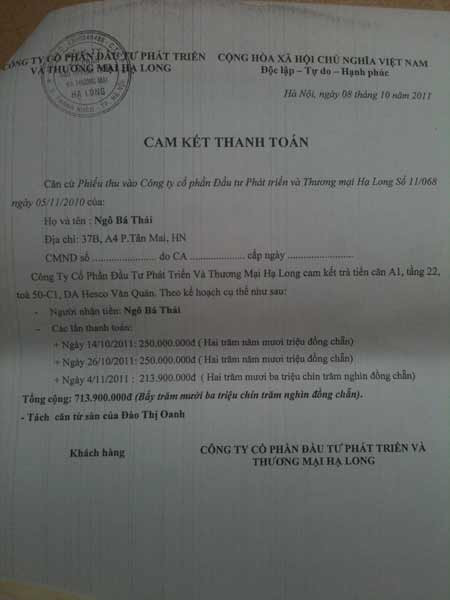 CÔNG TY CỔ PHẦN ĐẦU TƯ PHÁT TRIỂN
VÀ THƯƠNG MẠI HẠ LONG
CỘNG HÒA XÃ HỘI CHỦ NGHĨA VIỆT NAM
Độc lập – Tự do – Hạnh phúc
VÀ THƯƠNG MẠI
HẠ LONG
Hà Nội, ngày 08 tháng 10 năm 2011
CAM KẾT THANH TOÁN
Căn cứ Phiếu thu vào Công ty cổ phần Đầu tư Phát triển và Thương mại Hạ Long Số 11/068
ngày 05/11/2010 của:
Họ và tên : Ngô Bá Thái
Địa chỉ: 37B, A4 P.Tân Mai, HN
CMND số ........................ do CA .................... cấp ngày ....................
Công Ty Cổ Phần Đầu Tư Phát Triển Và Thương Mại Hạ Long cam kết trả tiền căn A1, tầng 22,
toà 50-C1, DA Hesco Văn Quán. Theo kế hoạch cụ thể như sau:
- Người nhận tiền: Ngô Bá Thái
- Các lần thanh toán:
+ Ngày 14/10/2011: 250.000.000đ ( Hai trăm năm mươi triệu đồng chẵn)
+ Ngày 26/10/2011: 250.000.000đ ( Hai trăm năm mươi triệu đồng chẵn)
+ Ngày 4/11/2011 : 213.900.000đ ( Hai trăm mươi ba triệu chín trăm nghìn đồng chẵn)
Tổng cộng: 713.900.000đ (Bảy trăm mười ba triệu chín trăm nghìn đồng chẵn).
- Tách căn từ sàn của Đào Thị Oanh
Khách hàng
CÔNG TY CỔ PHẦN ĐẦU TƯ PHÁT TRIỂN VÀ
THƯƠNG MẠI HẠ LONG